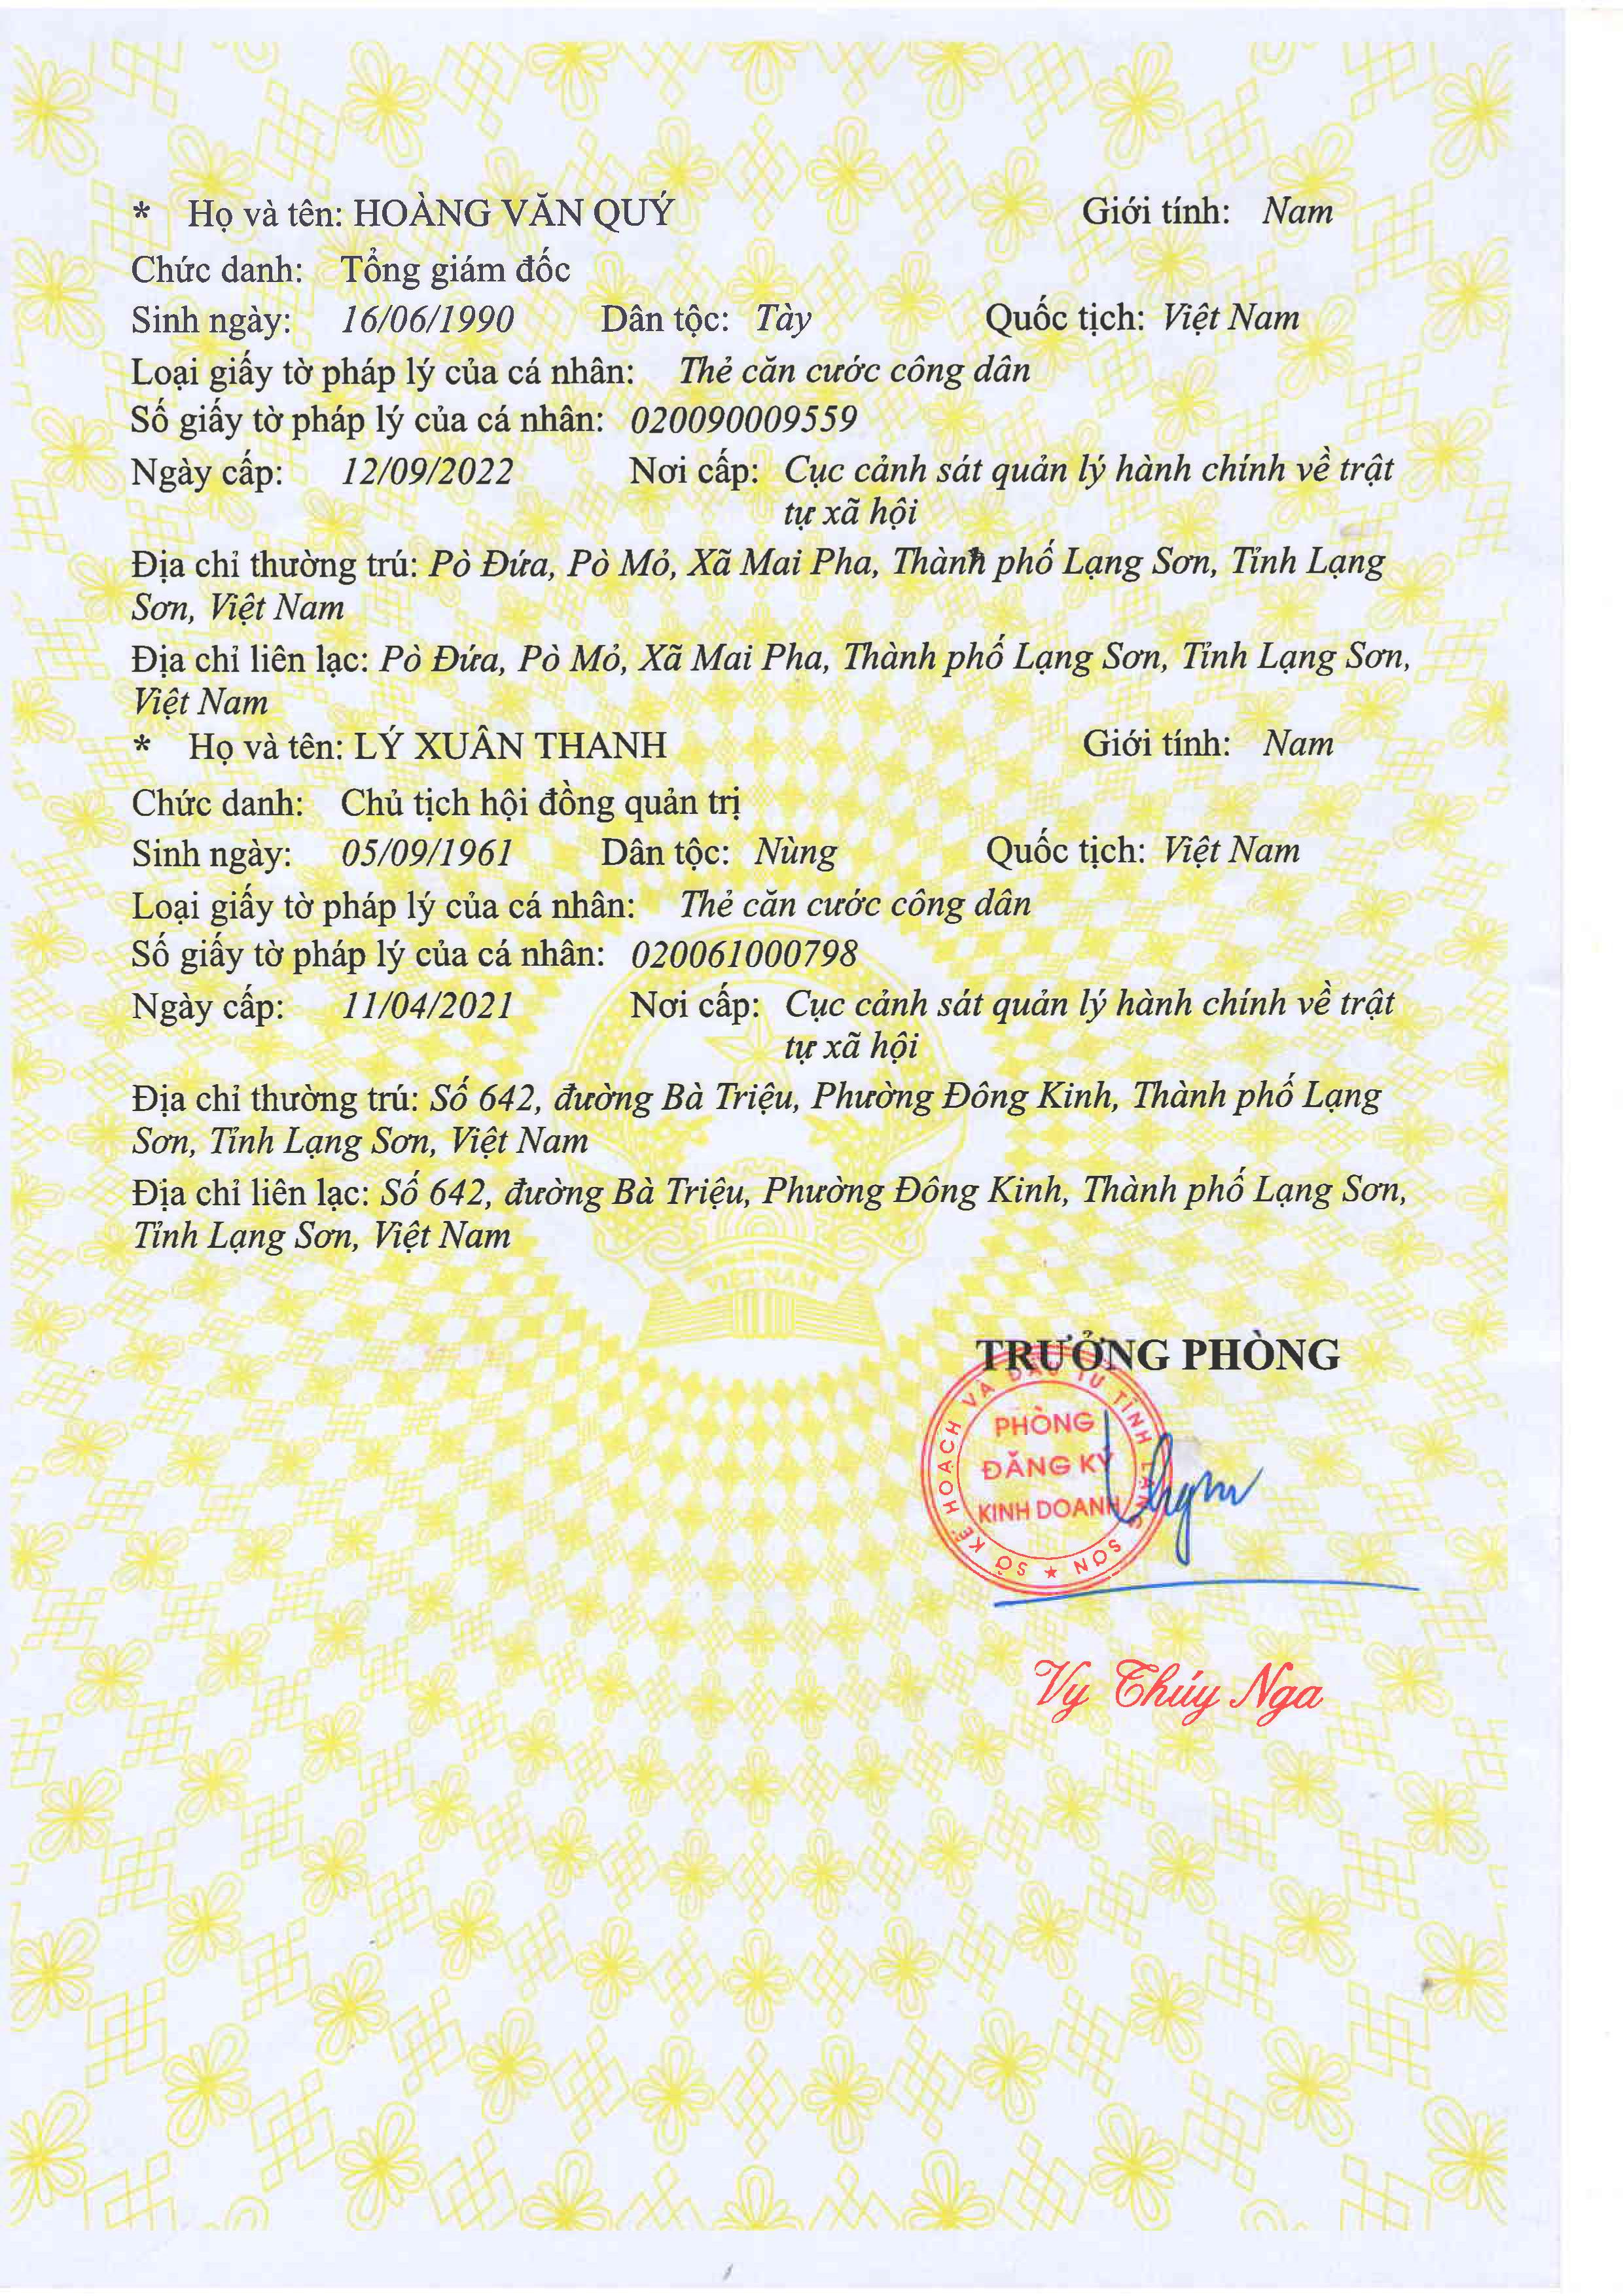 * Họ và tên: HOÀNG VĂN QUÝ Giới tính: Nam
Chức danh: Tổng giám đốc
Sinh ngày: 16/06/1990 Dân tộc: Tày Quốc tịch: Việt Nam
Loại giấy tờ pháp lý của cá nhân: Thẻ căn cước công dân
Số giấy tờ pháp lý của cá nhân: 020090009559
Ngày cấp: 12/09/2022 Nơi cấp: Cục cảnh sát quản lý hành chính về trật
tự xã hội
Địa chỉ thường trú: Pò Đứa, Pò Mỏ, Xã Mai Pha, Thành phố Lạng Sơn, Tỉnh Lạng
Sơn, Việt Nam
Địa chỉ liên lạc: Pò Đứa, Pò Mỏ, Xã Mai Pha, Thành phố Lạng Sơn, Tỉnh Lạng Sơn,
Việt Nam
* Họ và tên: LÝ XUÂN THANH Giới tính: Nam
Chức danh: Chủ tịch hội đồng quản trị
Sinh ngày: 05/09/1961 Dân tộc: Nùng Quốc tịch: Việt Nam
Loại giấy tờ pháp lý của cá nhân: Thẻ căn cước công dân
Số giấy tờ pháp lý của cá nhân: 020061000798
Ngày cấp: 11/04/2021 Nơi cấp: Cục cảnh sát quản lý hành chính về trật
tự xã hội
Địa chỉ thường trú: Số 642, đường Bà Triệu, Phường Đông Kinh, Thành phố Lạng
Sơn, Tỉnh Lạng Sơn, Việt Nam
Địa chỉ liên lạc: Số 642, đường Bà Triệu, Phường Đông Kinh, Thành phố Lạng Sơn,
Tỉnh Lạng Sơn, Việt Nam
VIỆT NAM
TRƯỞNG PHÒNG
SỞ KẾ HOẠCH VÀ ĐẦU TƯ TỈNH LẠNG SƠN
PHÒNG
ĐĂNG KÝ
KINH DOANH
Vy Thúy Nga